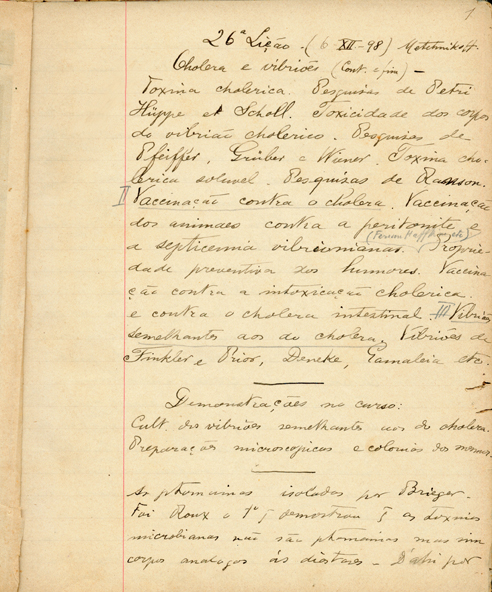 1
26ª Lição. (6-XII-98) Metchnikoff.
Cholera e vibriões (Cont. e fim) —
Toxina cholerica. Pesquisas de Petri
Hüppe et Scholl. Toxicidade dos corpos
do vibrião cholerico. Pesquisas de
Pfeiffer, Grüber e Wiener. Toxina cho-
lerica soluvel. Pesquisas de Ranson.
II Vaccinação contra o cholera. Vaccinação
dos animaes contra a peritonite e
(Ferran Haffkine etc)
a septicemia vibrioniana. Proprie-
dade preventiva dos humores. Vaccina-
ção contra a intoxicação cholerica.
e contra o cholera intestinal. III Vibriões
semelhantes aos do cholera, Vibriões de
Finkler e Prior, Deneke, Gamaleia etc.
Demonstrações no curso:
Cult. dos vibriões semelhantes aos do cholera.
Preparações microscopicas e colonias dos mesmos.
As ptomainas isoladas por Brieger.
Foi Roux o 1º q demostrou q as toxinas
microbianas não são ptomainas mas sim
corpos analogos ás diastases — D'ahi por